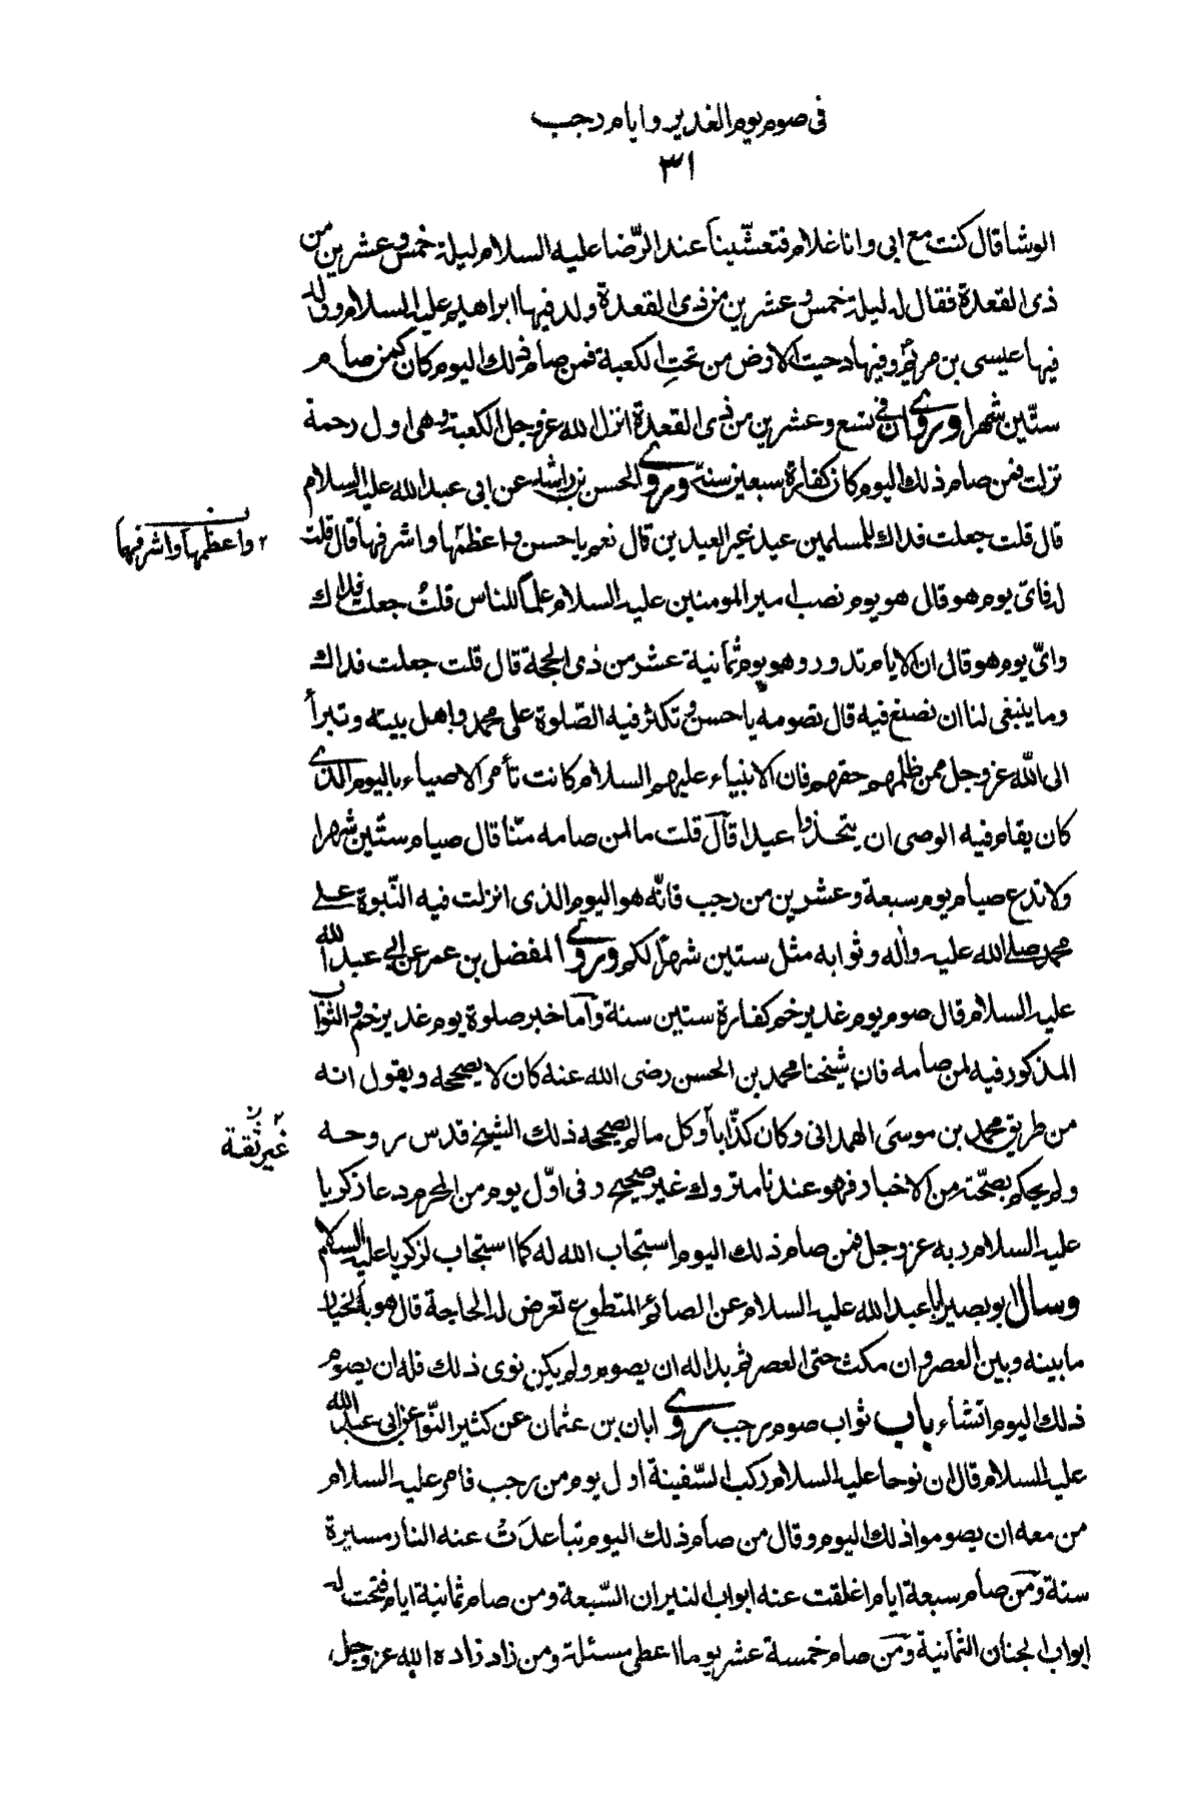 في صوم يوم الغدير وايام رجب
٣١
الوشا قال كنت مع ابى وانا غلام فتعشّينا عند الرّضا عليه السلام ليلة خمس وعشرين من
ذى القعدة فقال له ليلة خمس وعشرين من ذى القعدة ولد فيها ابراهيم عليه السلام وولد
فيها عيسى بن مريم وفيها دحيت الارض من تحت الكعبة فمن صام ذلك اليوم كان كمن صام
ستّين شهرا وروى ان في تسع وعشرين من ذى القعدة انزل الله عز وجل الكعبة وهى اول رحمة
نزلت فمن صام ذلك اليوم كان كفارة سبعين سنة وروى الحسن بن راشد عن ابى عبد الله عليه السلام
قال قلت جعلت فداك للمسلمين عيد غير العيدين قال نعم يا حسن واعظمها واشرفها قال قلت
٢ واعظمهما واشرفهما
له فاىّ يوم هو قال هو يوم نصب امير المومنين عليه السلام علماً للناس قلتُ جعلت فداك
واىّ يوم هو قال ان الايام تدور وهو يوم ثمانية عشر من ذى الحجة قال قلت جعلت فداك
وما ينبغى لنا ان نصنع فيه قال تصومه يا حسن وتكثر فيه الصّلوة على محمد واهل بيته وتبرأ
الى اللّه عز وجل ممن ظلمهم حقهم فان الانبياء عليهم السلام كانت تأمر الاوصياء باليوم الذى
كان يقام فيه الوصى ان يتخذوا عيدا قال قلت ما لمن صامه منّا قال صيام ستّين شهرا
ولا تدع صيام يوم سبعة وعشرين من رجب فانّه هو اليوم الذى انزلت فيه النّبوة على
محمد صلى الله عليه واله وثوابه مثل ستين شهراً لكم وروى المفضل بن عمر عن ابى عبد الله
عليه السلام قال صوم يوم غدير خم كفارة ستين سنة وأما خبر صلوة يوم غدير خم والثواب
المذكور فيه لمن صامه فان شيخنا محمد بن الحسن رضى الله عنه كان لا يصححه ويقول انه
من طريق محمد بن موسى الهمدانى وكان كذّاباً وكل ما لم يصححه ذلك الشيخ قدس روحه
٢ ن
غير ثقة
ولم يحكم بصحّته من الاخبار فهو عندنا متروك غير صحيح وفى اوّل يوم من المحرم دعا زكريا
عليه السلام ربه عز وجل فمن صام ذلك اليوم استجاب الله له كما استجاب لزكريا عليه السلام
وسال ابو بصير ابا عبد الله عليه السلام عن الصائم المتطوع تعرض له الحاجة قال هو بالخيار
ما بينه وبين العصر وان مكث حتى العصر ثم بدا له ان يصوم ولم يكن نوى ذلك فله ان يصوم
ذلك اليوم انشاء باب ثواب صوم رجب روى ابان بن عثمان عن كثير النّوا عن ابى عبد الله
عليه السلام قال ان نوحا عليه السلام ركب السّفينة اول يوم من رجب فامر عليه السلام
من معه ان يصوموا ذلك اليوم وقال من صام ذلك اليوم تباعدَتْ عنه النار مسيرة
سنة ومن صام سبعة ايام اغلقت عنه ابواب النيران السّبعة ومن صام ثمانية ايام فتحت له
ابواب الجنان الثمانية ومن صام خمسة عشر يوما اعطى مسئلة ومن زاد زاده الله عز وجل